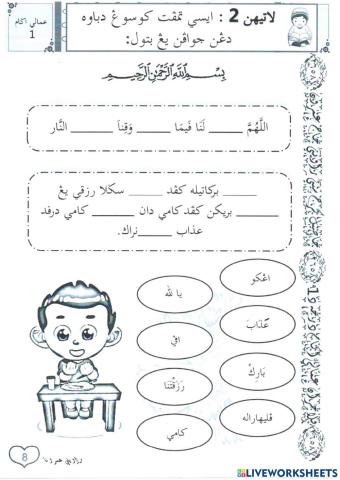 عملي اݢام
1
لاتيهن 2 : ايسي تمڤت كوسوڠ دباوه
دڠن جواڤن يڠ بتول:
بِسْمِ اللَّهِ الرَّحْمَٰنِ الرَّحِيمِ
اللَّهُمَّ _____ لَنَا فِيمَا _____ وَقِنَا _____ النَّار
_____ بركاتيله كڤد _____ سݢلا رزقي يڠ
_____ بريكن كڤد كامي دان _____ كامي درڤد
عذاب _____نراك.
اڠكو
يا الله
عَذَابَ
اڤي
بَارِكْ
رَزَقْتَنَا
ڤليهاراله
كامي
8
LIVEWORKSHEETS